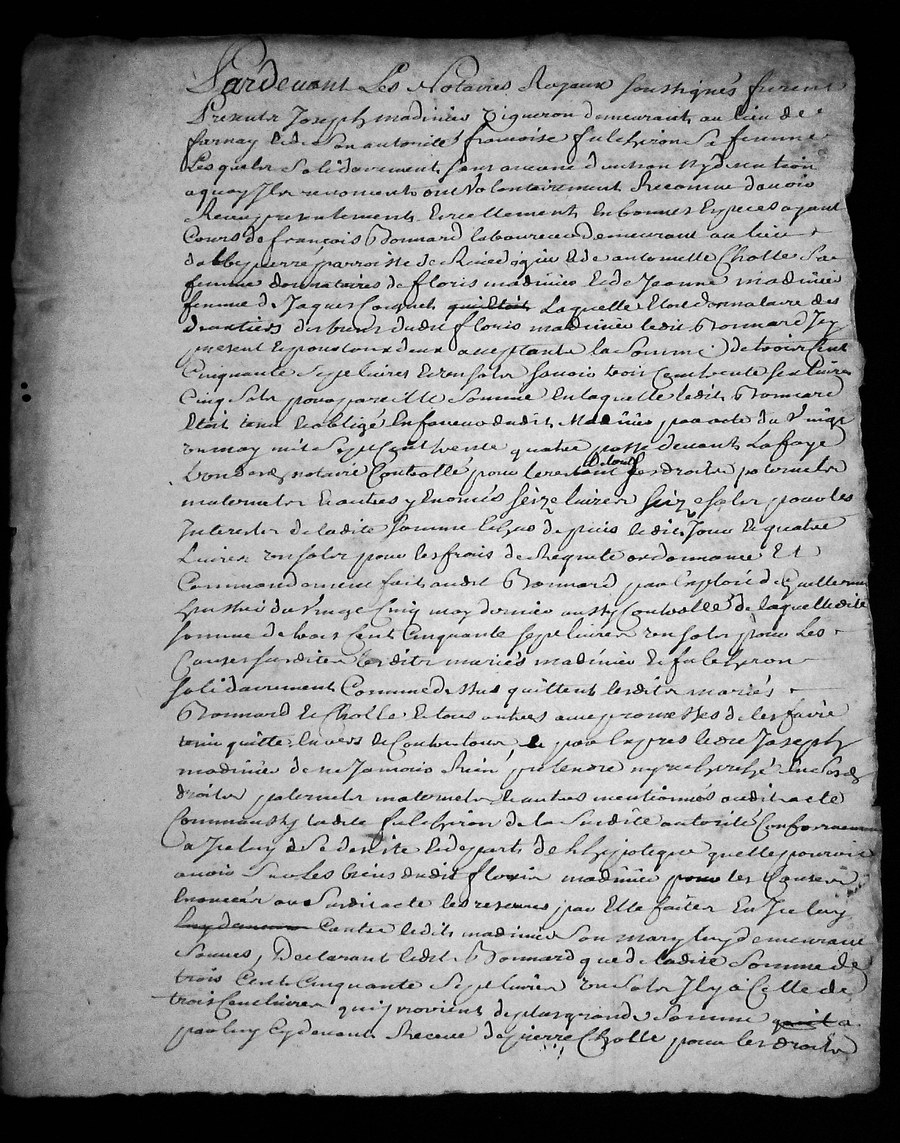 Pardevant Les Notaires Royaux soussignés furent
Presents Joseph madinier vigneron demeurant au lieu de
farnay et de son autorité francoise fulchiron sa femme
Lesquels solidairement sans aucune division ny discution
a quoy Ils renoncent ont volontairement Reconnu d'avoir
Receu presentement et reellement en bonnes Especes ayant
Cours de françois Bonnard laboureur demeurant au lieu
parroisse de et de antoinette Cholle sa
femme donnataires de floris madinier et de Jeanne madinier
femme de Jaques Laquelle Etoit donnataire des
des biens dudit floris madinier ledit Bonnard Icy
present et pour tous deux acceptant la somme de trois Cent
Cinquante sept livres et un sols savoir trois Cent trente six livres
Cinq sols pour pareille somme en laquelle ledit Bonnard
Etoit tenu et obligé en faveur dudit Madinier par acte du vingt
un may mil sept Cent trente quatre passé devant Lafaye
notaire Controllé pour de tous ses droits paternels
maternels et autres y Enoncés seize livres seize sols pour les
Interests de ladite somme Echus depuis ledit Jour et quatre
Livres un sols pour les frais de Requete ordonnance Et
Commandement fait audit Bonnard par Exploit de Guillermin
huissier du vingt Cinq may dernier aussy Controllé de laquelle dite
somme de trois Cent Cinquante sept livres un sols pour Les
Causes susdites lesdits mariés madinier et fulchiron
solidairement Comme dessus quittent lesdits mariés
Bonnard et Cholle et tous autres avec promesses de les faire
tenir quitte Envers et Contre tous et par Exprés ledit Joseph
madinier de ne Jamais Rien pretendre ny rechercher En ses
droits paternels maternels et autres mentionnés audit acte
Comm'aussy ladite fulchiron de la susdite autorité Conformement
a Iceluy de se desiste et depart de l'hypoteque quelle pourroit
avoir sur Les biens dudit floris madinier pour les Causes
Enoncées au susdit acte les reserves par Elle faites En Iceluy
Contre ledit madinier son mary luy demeurant
sauves, Declarant ledit Bonnard que de ladite somme de
trois Cent Cinquante sept livres un sols Il y a Celle de
trois Cent livres qui provient de plus grande somme
par luy Cydevant Receue de pierre Cholle pour les droits